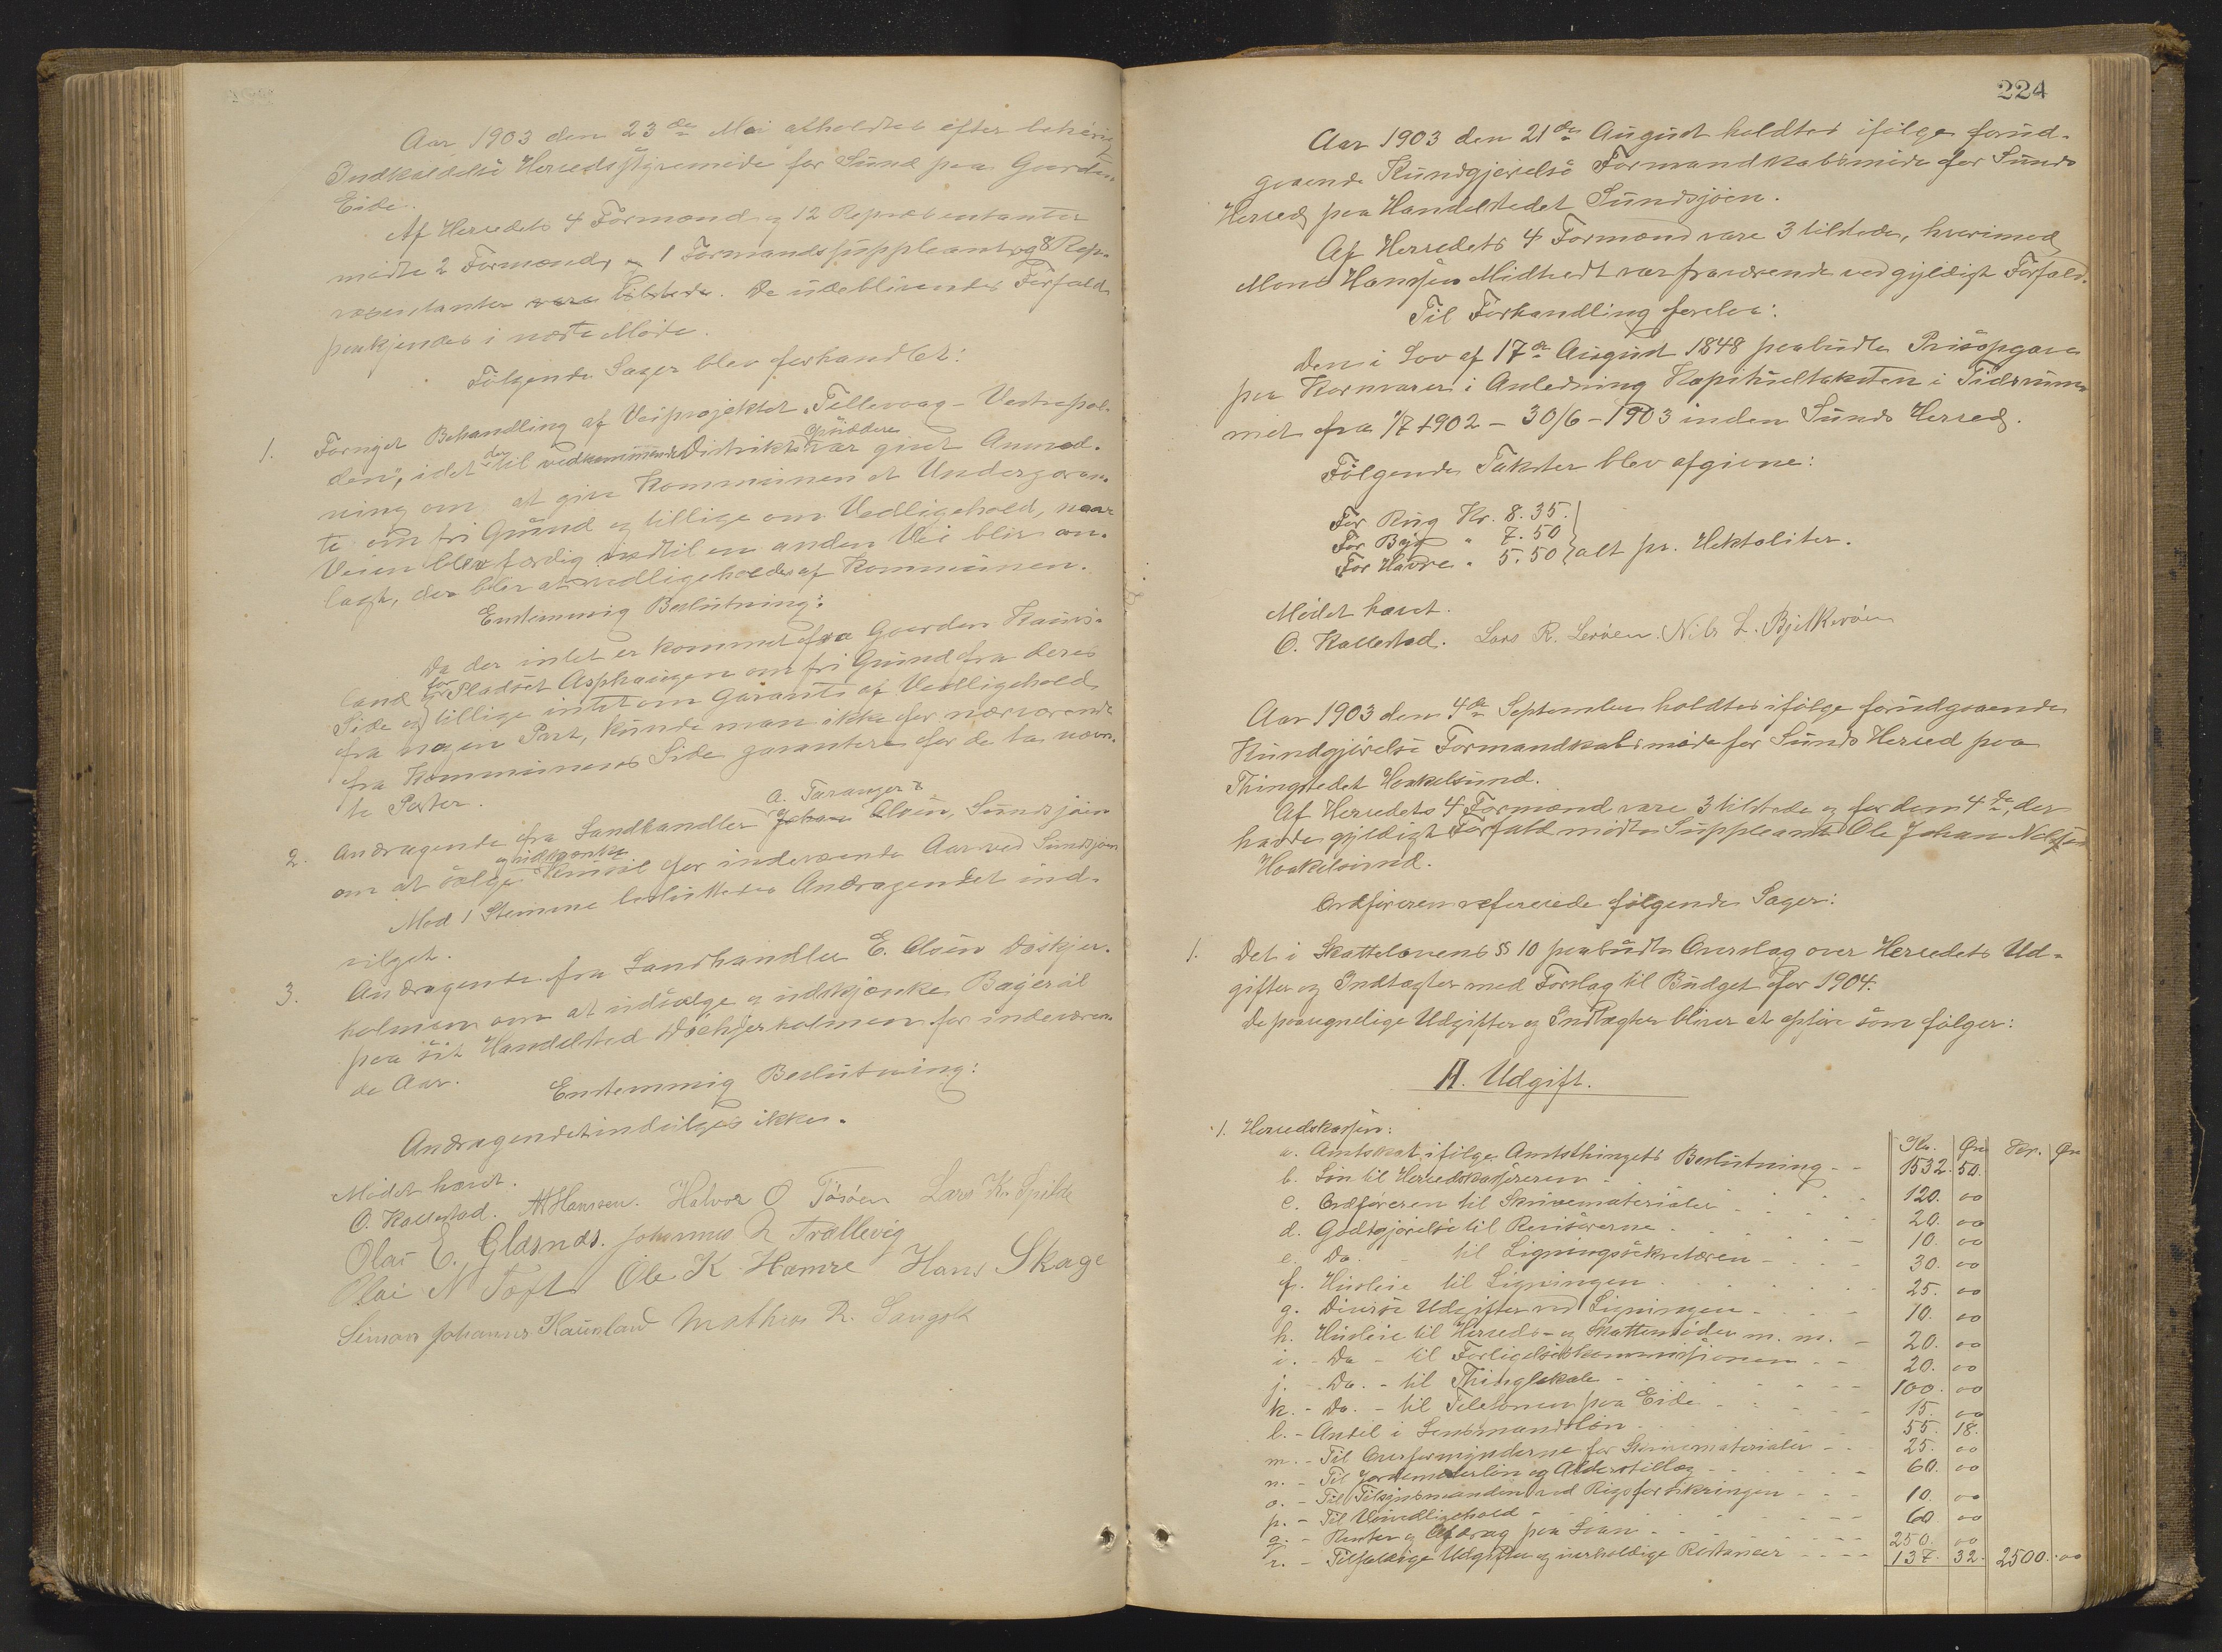 Aar 1903 den 23de Mai afholdtes efter behørig
Indkaldelse Herredsstyremøde for Sund paa Gaarden
Eide.
Af Herredets 4 Formænd og 12 Repræsentanter
mødte 2 Formænd, og 1 Formandssuppleant og 8 Rep-
ræsentanter vare tilstede. De udeblivendes Forfald
paakjendes i næste Møde.
Følgende Sager blev forhandlet:
1. Fornyet Behandling af Veiprojektet "Tellevaag - Vestrepol-
den", idet der til vedkommende Distrikts Opsiddere var givet Anmod-
ning om at give Kommunen et Undergaran-
te om fri Grund og tillige om Vedligehold, naar
Veien blev færdig indtil en anden Vei blir an-
lagt, der blir at vedligeholdes af Kommunen.
Enstemmig Beslutning:
Da der intet er kommet fra Gaarden Kaus-
land for Pladset Asphaugen om fri Grund fra deres
Side og tillige intet om Garanti af Vedligehold
fra nogen Part, kunde man ikke for nærværende
fra Kommunens Side garantere for de to nævn-
te Poster.
2. Andragende fra Landhandler A. Taranger & Johan Olsen, Sundsjøen
om at sælge og udskjænke Ruusøl for indeværende Aar ved Sundsjøen
Mod 1 Stemme besluttedes Andragendet ind-
vilget.
3. Andragende fra Landhandler E. Olsen Døskjer-
holmen om at udsælge og udskjænke Bajerøl
paa sit Handelsted Døskjerholmen for indeværen-
de Aar.
Enstemmig Beslutning:
Andragendet indvilges ikke.
Mødet hævet.
O. Kallestad. A Hanssen. Halvor O Tøsøen Lars K. Spilde
Olai E. Glæsnæs. Johannes L Trællevig
Olai N Toft Ole K Hamre Hans Skage
Simon Johannes Kausland Mathias R. Sangolt
224
Aar 1903 den 21de August holdtes ifølge forud-
gaaende Kundgjørelse Formandskabsmøde for Sunds
Herred paa Handelstedet Sundsjøen.
Af Herredets 4 Formænd vare 3 tilstede, hvorimod
Mons Hanssen Midttvedt var fraværende ved gyldigt Forfald.
Til Forhandling forelaa:
Den i Lov af 17de August 1848 paabudte Prisopgave
paa Kornvarer i Anledning Kapitultaksten i Tidsrum-
met fra 1/7 1902 - 30/6 - 1903 inden Sunds Herred.
Følgende Takster blev afgivne:
For Rug Kr. 8.35.
For Byg " 7.50
For Havre " 5.50 } alt pr. Hektoliter.
Mødet hævet.
O. Kallestad. Lars R. Lerøen. Nils L. Bjelkerøen
Aar 1903 den 4de September holdtes ifølge forudgaaende
Kundgjørelse Formandskabsmøde for Sunds Herred paa
Thingstedet Hækelsund.
Af Herredets 4 Formænd vare 3 tilstede og for den 4de, der
havde gyldigt Forfald mødte Suppleant Ole Johan Nilssen
Hækelsund.
Ordføreren refererede følgende Sager:
1. Det i Skattelovens §§ 10 paabudte Overslag over Herredets Ud-
gifter og Indtægter med Forslag til Budget for 1904.
De paaregnelige Udgifter og Indtægter bliver at opføre som følger:
A. Udgift.
1. Herredskassen: Kr. Øre Kr. Øre
a. Amtsskat ifølge Amtsthingets Beslutning - - 1532. 50.
b. Løn til Herredskassereren - - 120. 00
c. Ordføreren til Skrivematerialer - - 20. 00
d. Godtgjørelse til Revisorerne - - 10. 00
e. Do. - til Ligningssekretæren - - 30. 00
f. Husleie til Ligningen - - 25. 00
g. Diverse Udgifter ved Ligningen - - 10. 00
h. Husleie til Herreds- og Skattemøder m. m. - 20. 00
i. - Do - til Forligelseskommissionen - - 20. 00
j. - Do. - til Thinglokale - - 100. 00
k. - Do. - til Telefonen paa Eide - - 15. 00
l. - Andel i Lensmandsløn - - 55. 18.
m. - Til Overformynderne for Skrivematerialer - - 25. 00
n. - Til Jordemoderløn og Alderstillæg - - 60. 00
o. - Til Tilsynsmanden ved Rigsforsikringen - - 10. 00
p. - Til Veivedligehold - - 60. 00
q. - Renter og Afdrag paa Laan - - 250. 00
r. - Tilfældige Udgifter og uerholdige Restancer - - 137. 32. 2500. 00